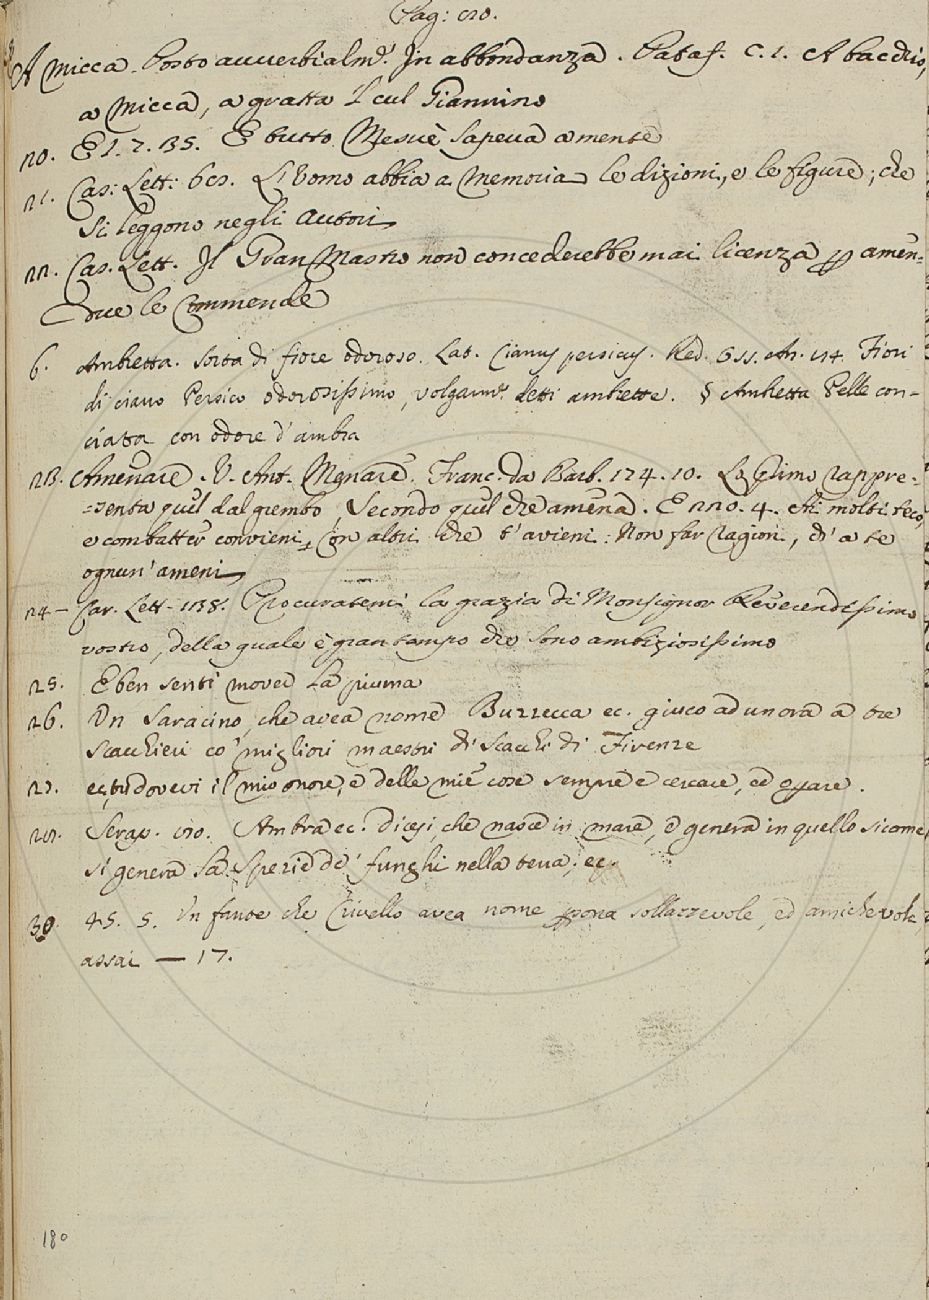 A Micca. Posto avverbialm.e In abbondanza. Pataf. C. 1. A bacchio,
a Micca, a gratta l cul Giannino
20. E 1. 2. 135. E tutto Mesuè sapeva a mente
21. Cas: Lett: 65. L'Uomo abbia a Memoria le dizioni, e le figure; che
si leggono negli Autori
22. Cas. Lett. Il Gran Mastro non concederebbe mai licenza p amen=
due le Commende
6. Ambretta. Sorta di fiore odoroso. Lat. Cianus persicus. Red. Oss. An. Fiori
di ciano Persico odorosissimo, volgarm.e detti ambrette. § Ambretta Pelle con=
ciata con odore d'ambra
23. Amenare. V. Ant. Menare. Franc. da Barb. 174. 10. La Primo rappre=
=senta quel dal grembo Secondo quel che amena. E 220. 4. A molti seco,
e combatter convieni, Con altri che t'avieni: Non far ragion, ch'a te
ognun' ameni
24 - Car. Lett. 1. 138. Procuratemi la grazia di Monsignor Reverendissimo
vostro, della quale è gran tempo che sono ambiziosissimo
25. E ben senti mover la piuma
26. Un Saracino, che avea nome Buzzecca ec. giuco ad unora a tre
Scacchieri co' migliori maestri di Scacchi di Firenze
27. ec, tu dovevi il mio onore, e delle mie cose sempre e cercare, ed
28. Serap. Ambra ec. dicesi, che nasce in mare, e genera in quello sicome
si genera la Spezie de' funghi nella terra; ec.
30. 45. 5. Un fante che Crivello avea nome pona sollazzevole, ed amichevole
assai — 17.
180